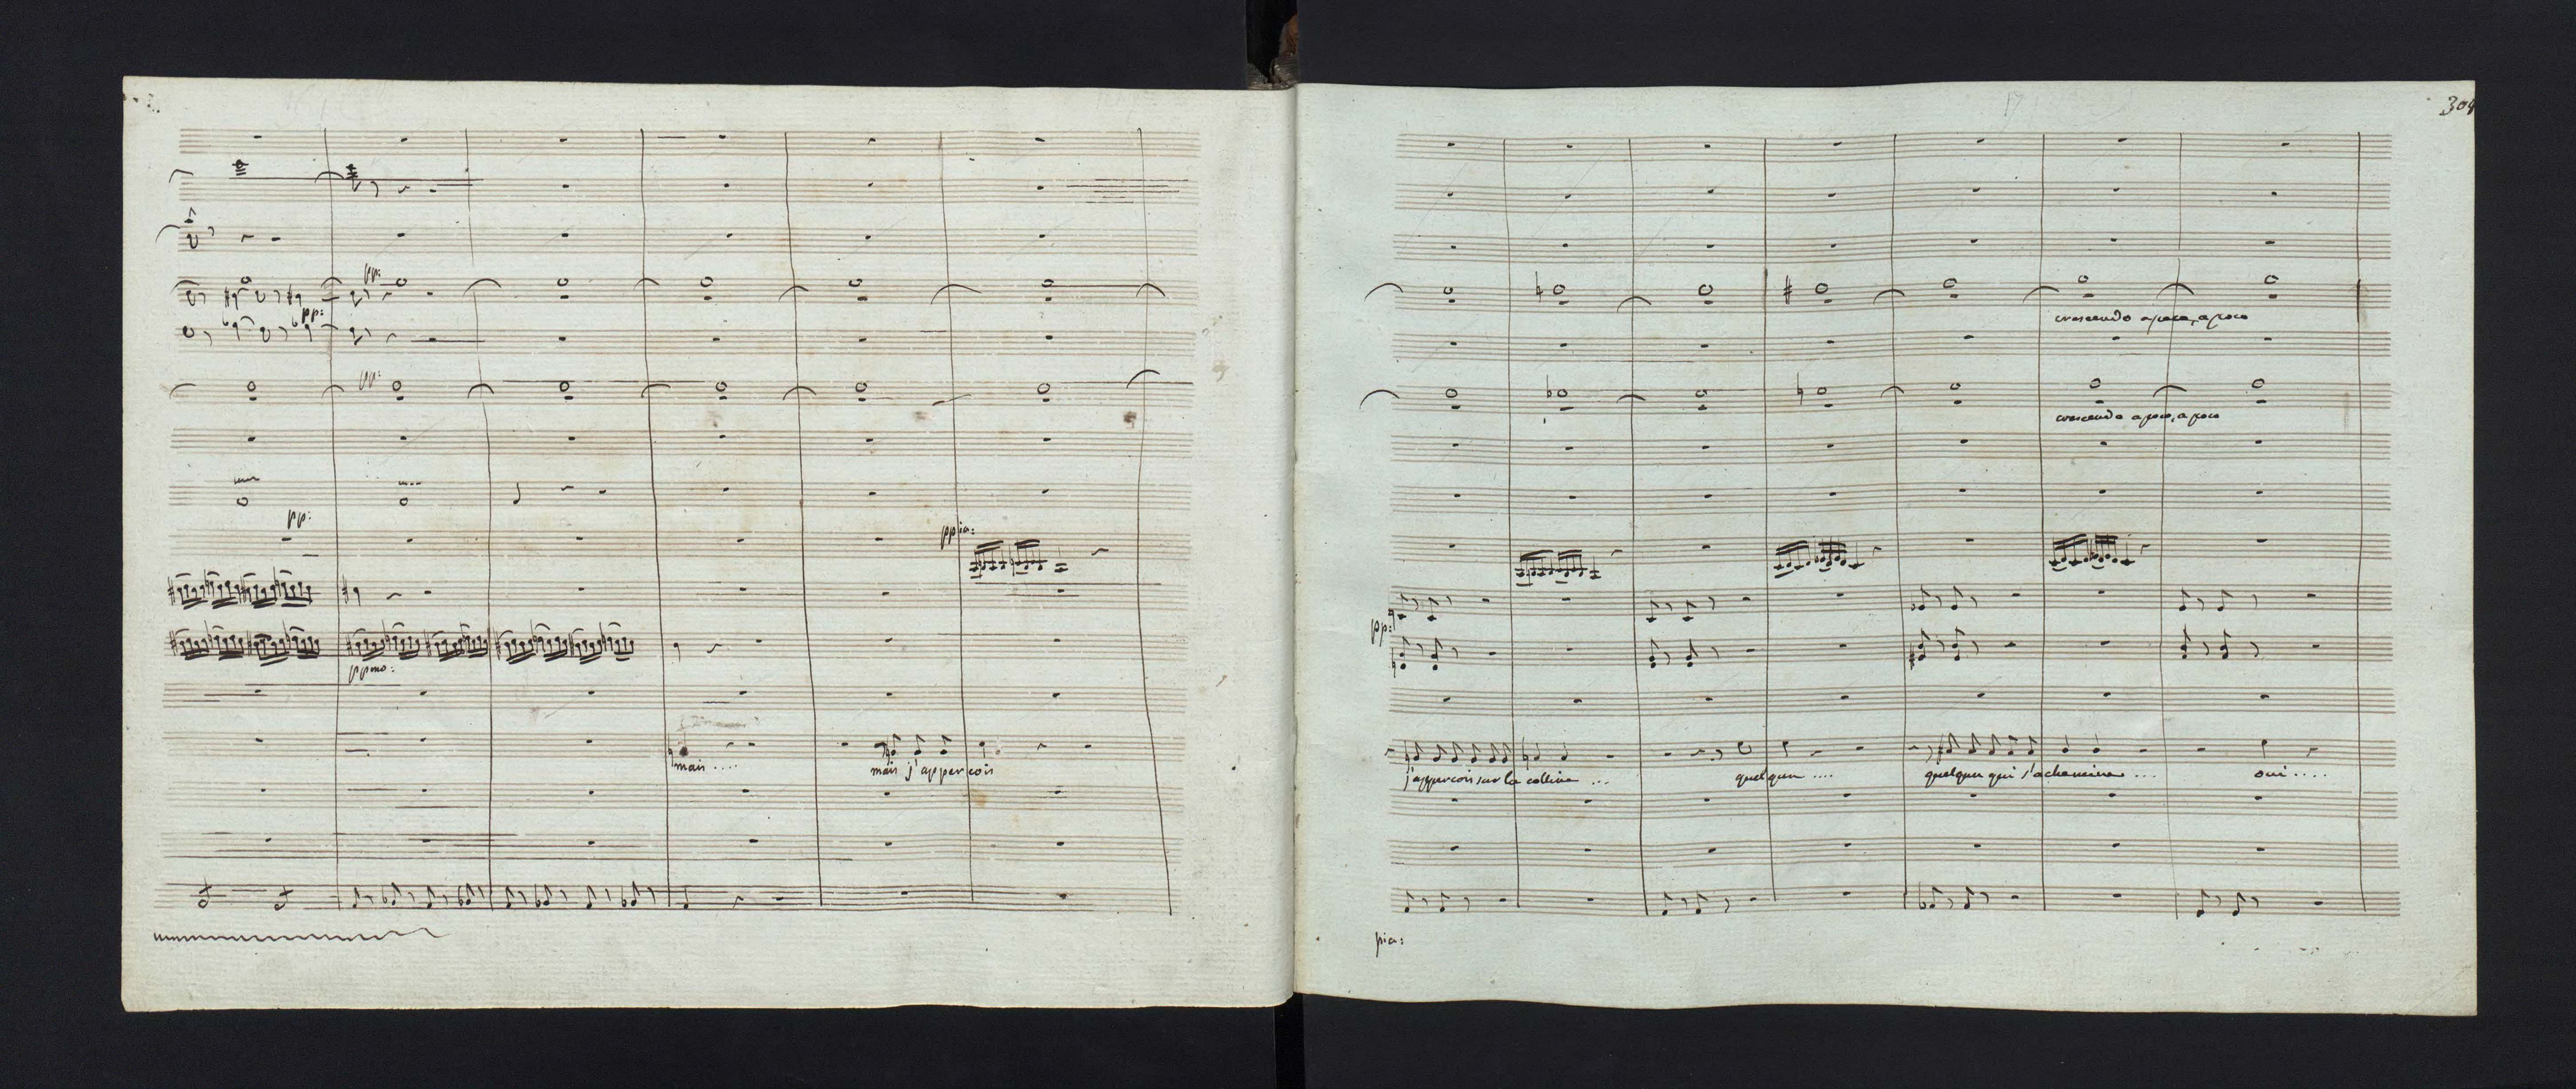 pp:
pp:
pp:
pp:
ppia:
ppmo:
mais .... mais j'apperçois
304
crescendo a poco, a poco
crescendo a poco, a poco
pp:
j'apperçois sur la colline ... quelqun .... quelqun qui s'achemine ... oui ....
pia: